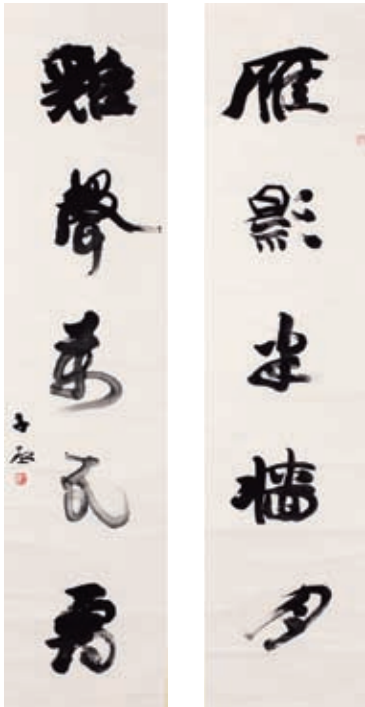 雁影半牆月
雞聲萬瓦霜